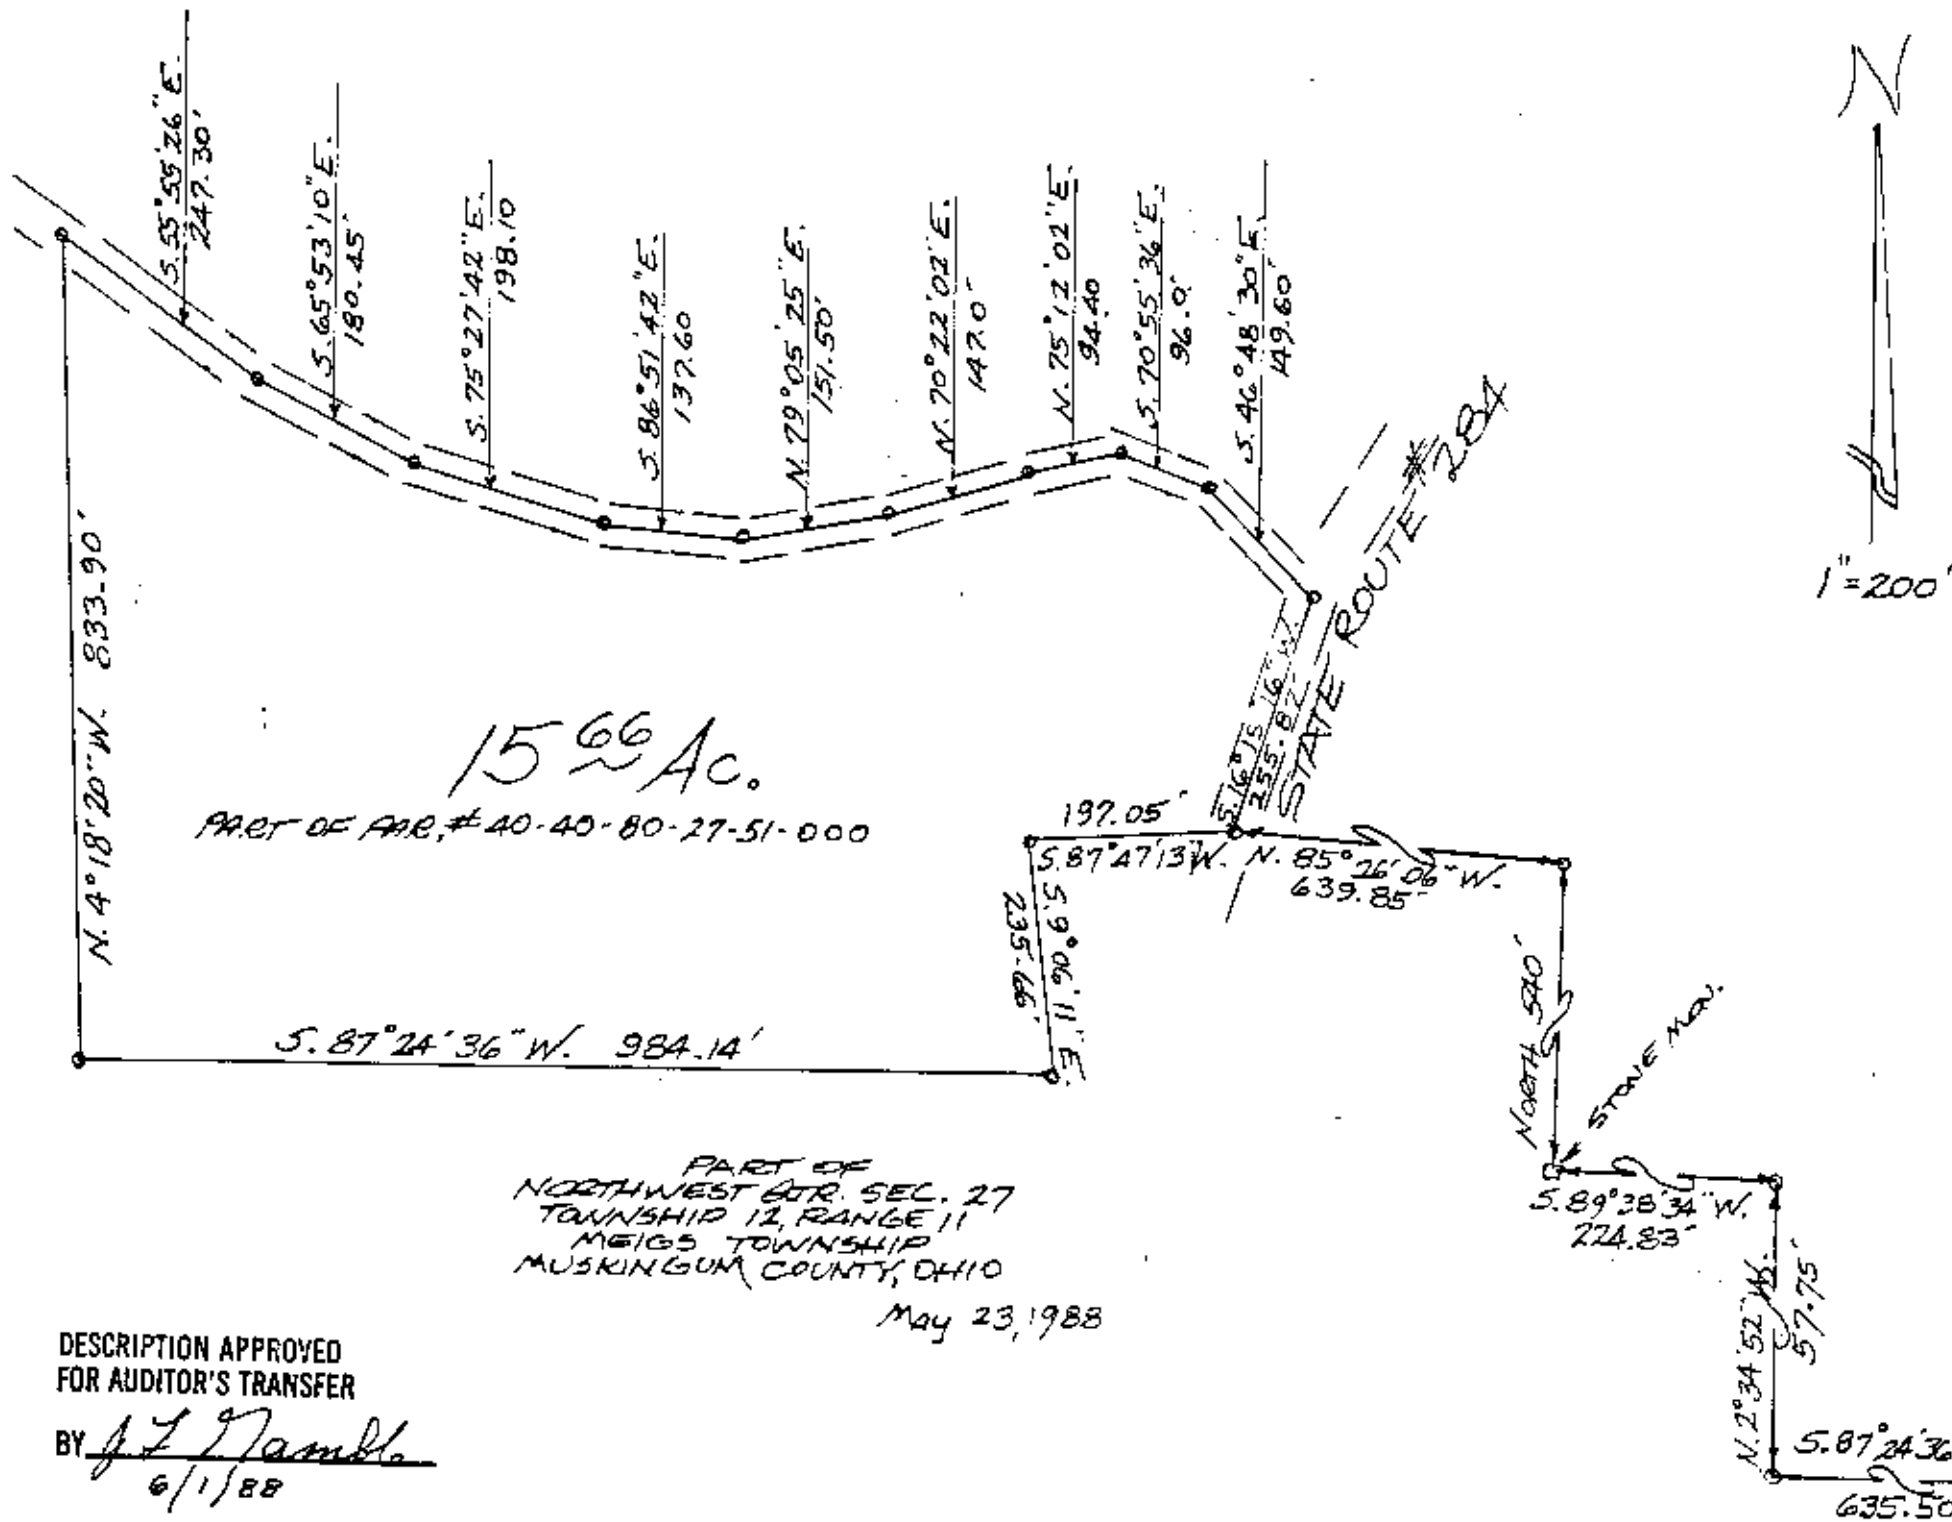 N
1"=200'
S.55°55'26"E.
247.30'
S.65°53'10"E.
180.45'
S.75°27'42"E.
198.10
S.86°51'42"E.
137.60
N.79°05'25"E.
151.50'
N.70°22'02"E.
147.0'
N.75°12'02"E.
94.40
S.70°55'36"E.
96.0'
S.46°48'30"E.
149.60'
STATE ROUTE # 284
S.16°15'16"W.
255.82'
N.4°18'20"W. 833.90'
15 66 Ac.
PART OF PAR.# 40-40-80-27-51-000
197.05'
S.87°47'13"W.
N.85°26'06"W.
639.85'
S.9°06'11"E.
235.66'
S.87°24'36"W. 984.14'
NORTH 540'
STONE MON.
S.89°38'34"W.
224.83'
N.2°34'52"W.
57.75'
S.87°24'36
635.50
PART OF
NORTHWEST QTR. SEC. 27
TOWNSHIP 12, RANGE 11
MEIGS TOWNSHIP
MUSKINGUM COUNTY, OHIO
May 23, 1988
DESCRIPTION APPROVED
FOR AUDITOR'S TRANSFER
BY
6/1/88